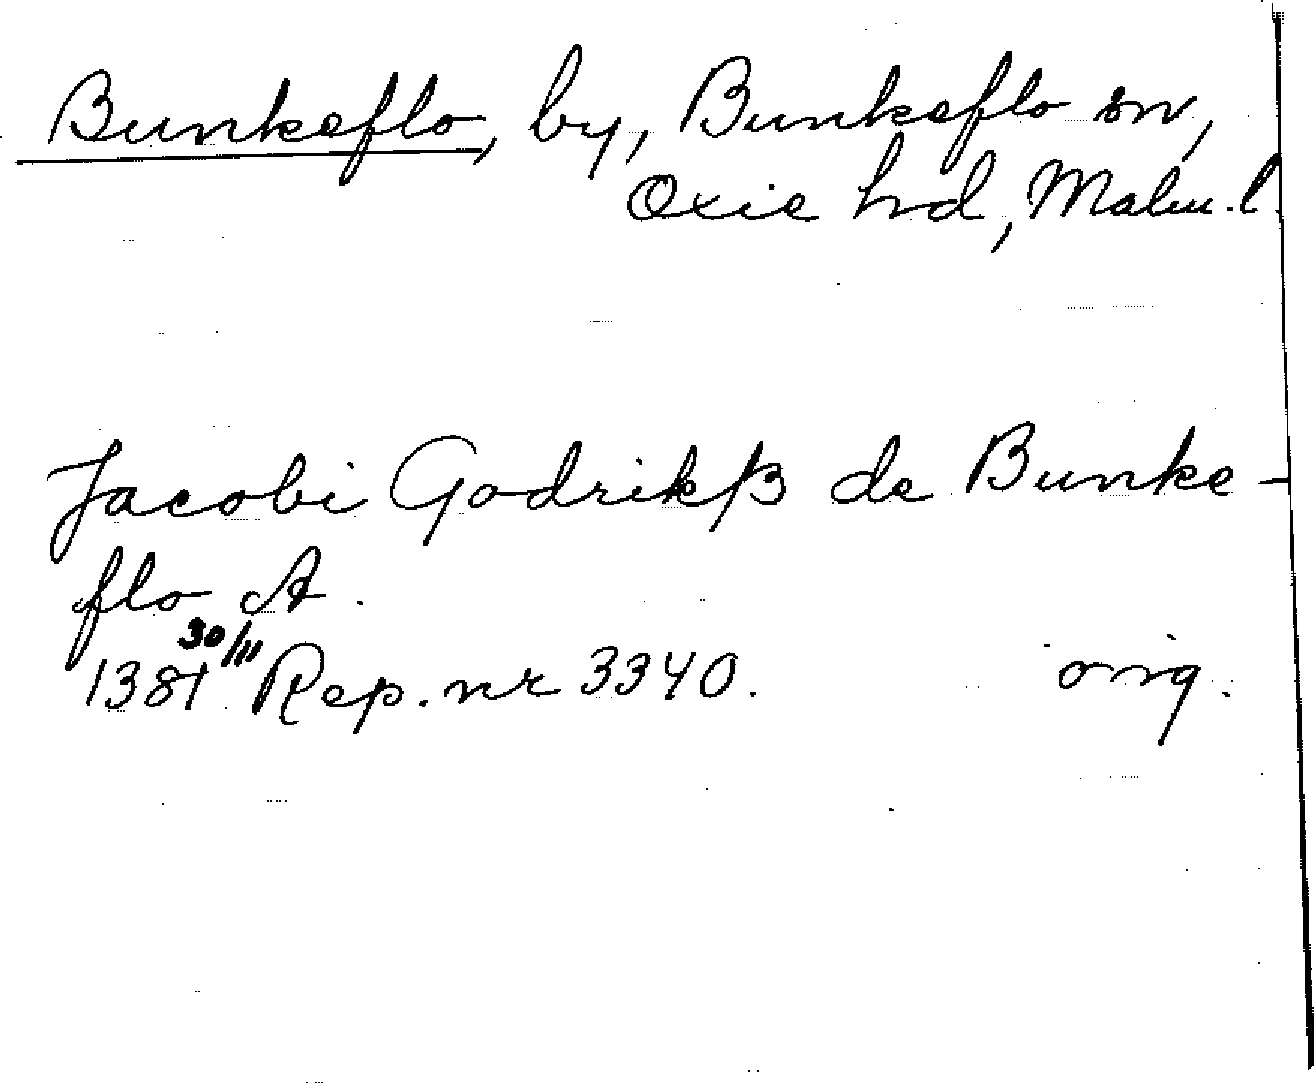 Bunkeflo, by, Bunkeflo sn,
Oxie hd, Malm. l.
Jacobi Godrikß de Bunke-
flo A.
1381 30/11 Rep. nr 3340. orig.